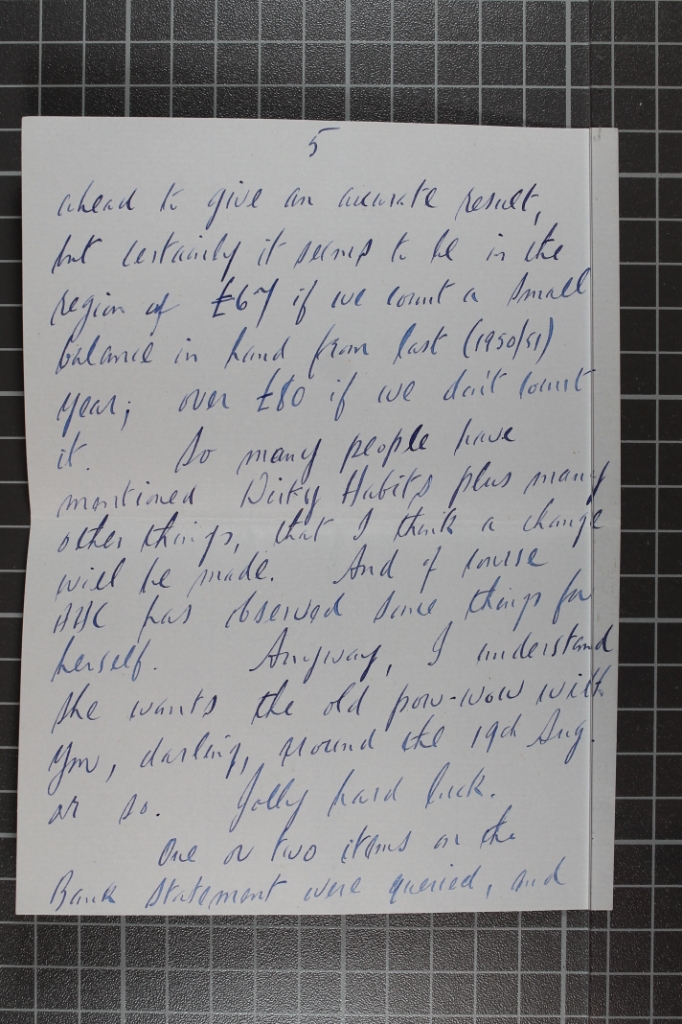 5
ahead to give an accurate result,
but certainly it seems to be in the
region of £67 if we count a small
balance in hand from last (1950/51)
year; over £80 if we don't count
it. So many people have
mentioned Dirty Habits plus many
other things, that I think a change
will be made. And of course
HHC has observed some things for
herself. Anyway, I understand
she wants the old pow-wow with
you, darling, around the 19th Aug.
or so. Jolly hard luck.
One or two items on the
Bank Statement were queried, and